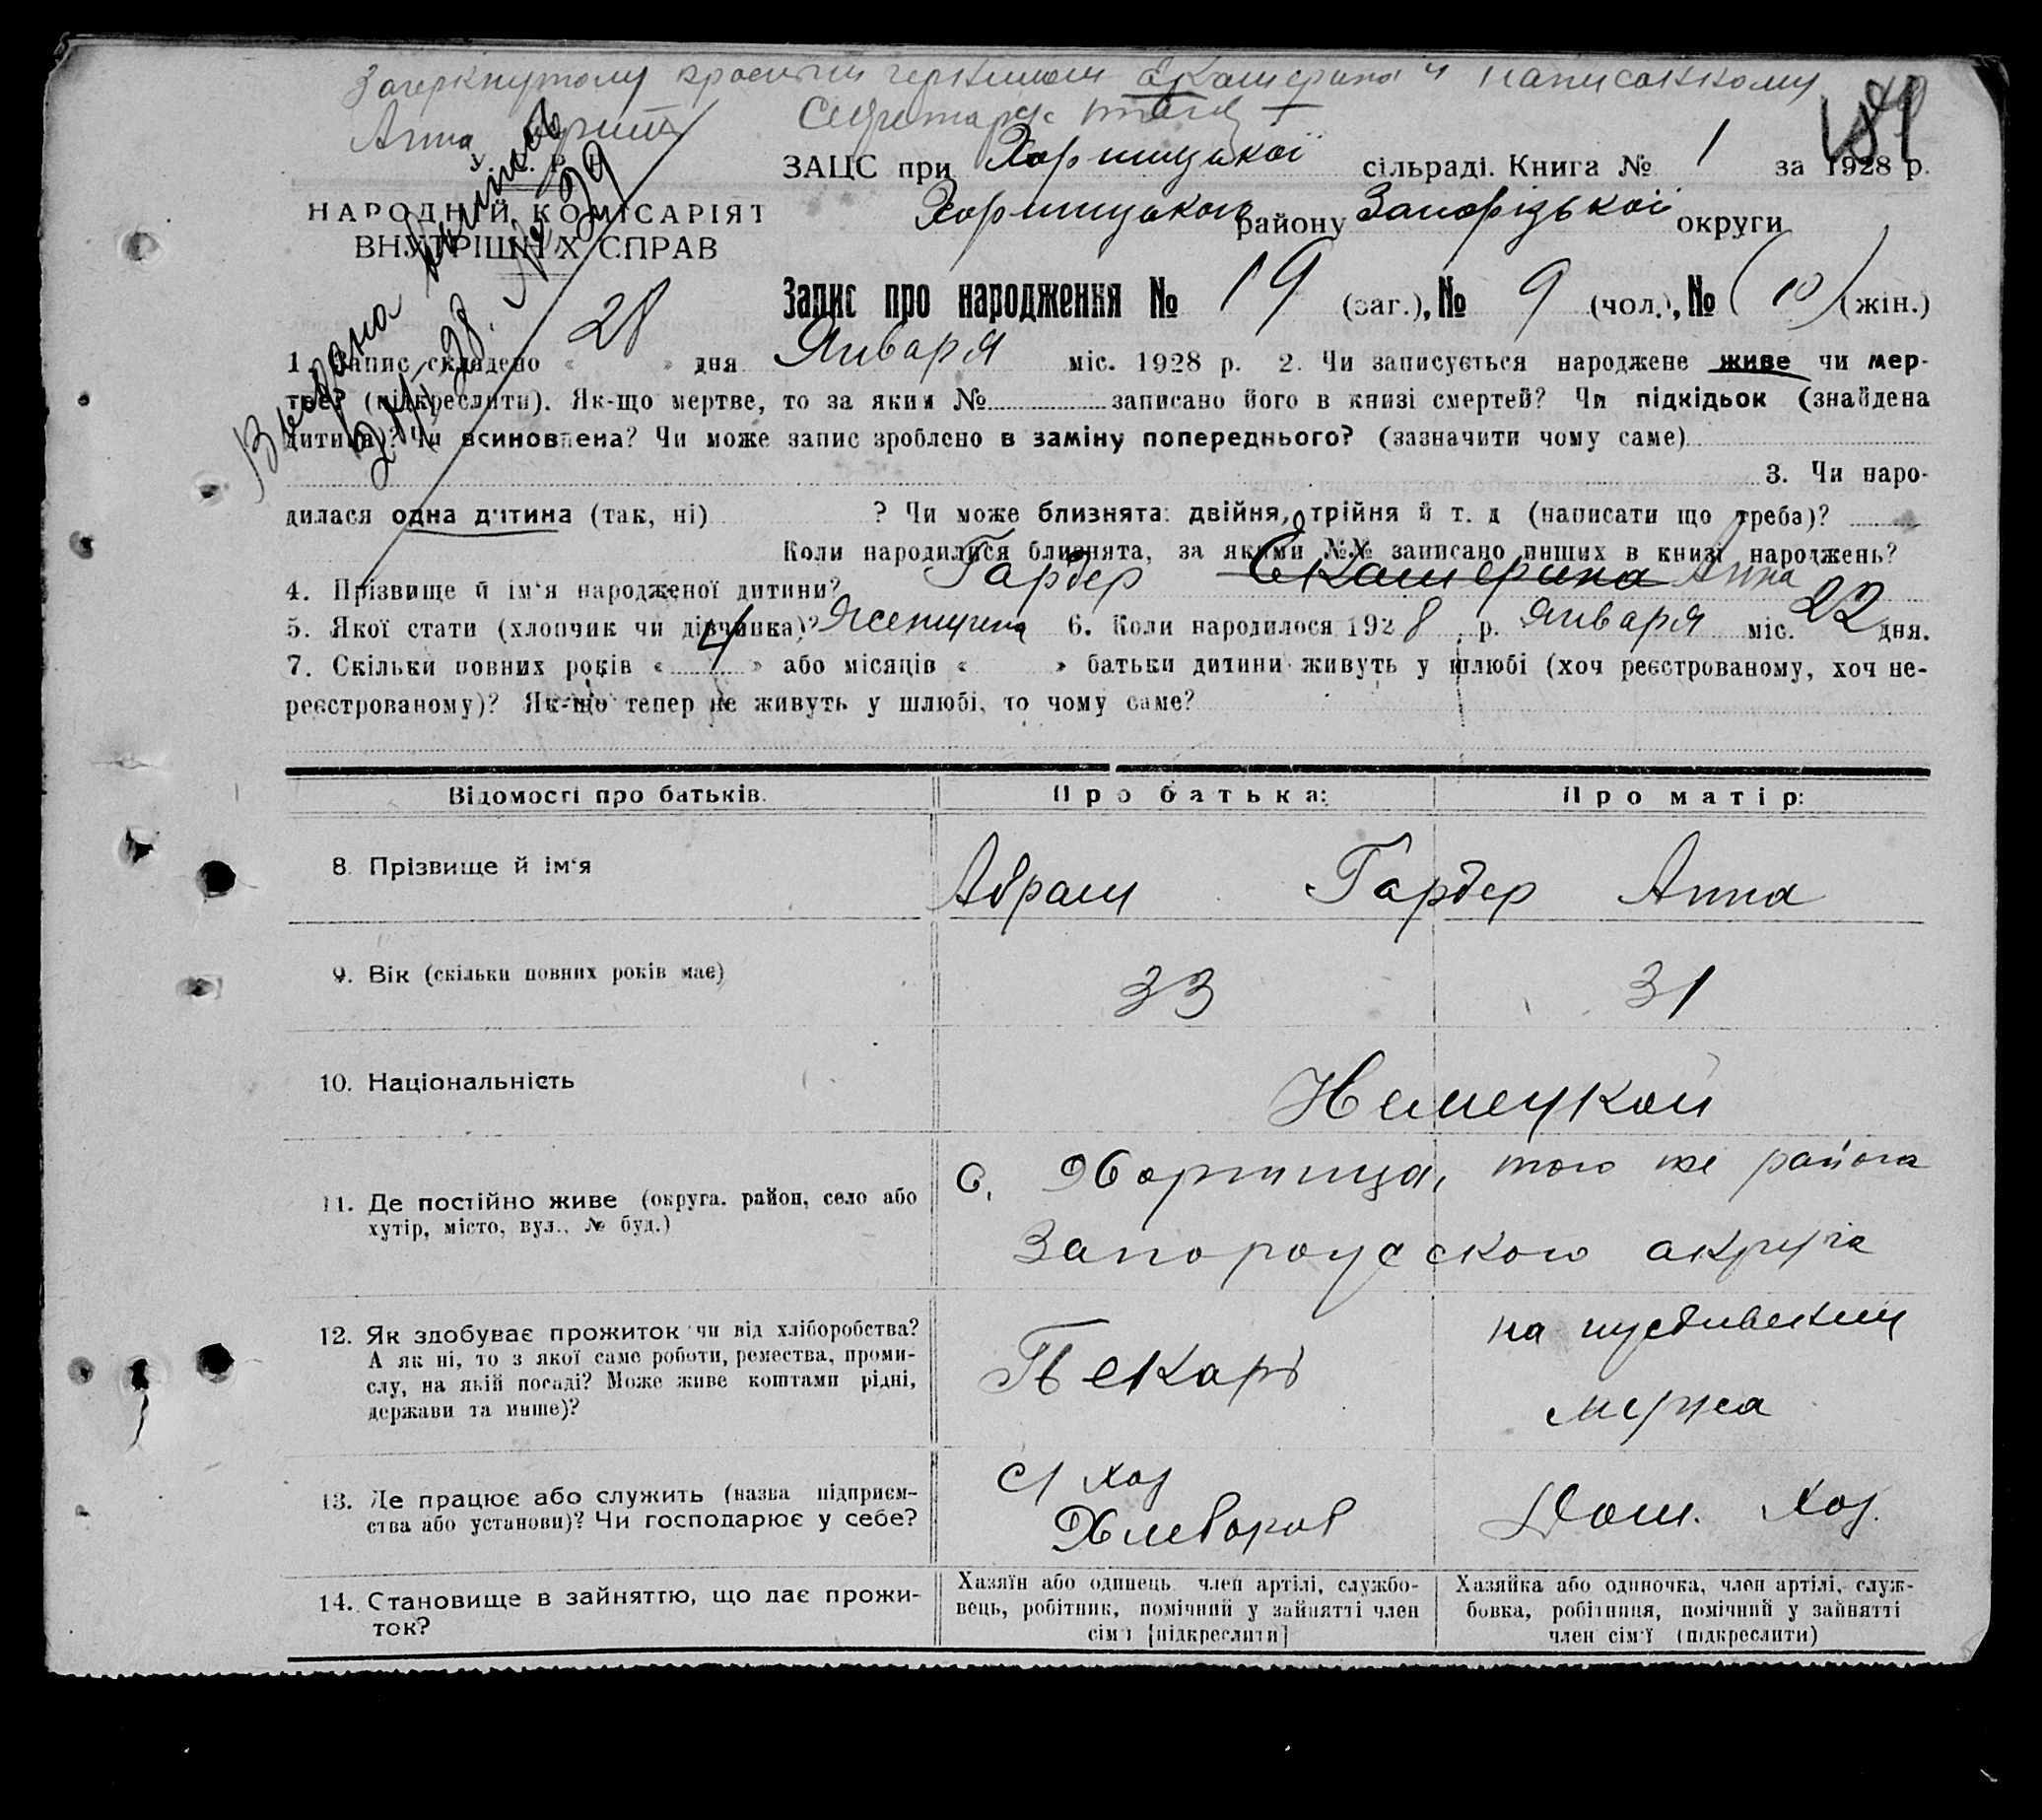 Зачеркнутому красными чернилами Екатерина и написанному
Анна
Секретарь
ЗАЦС при Хортицької сільраді. Книга № 1 за 1928 р.
Хортицького району Запорізької округи
НАРОДНІЙ КОМІСАРІЯТ
ВНУТРІШНІХ СПРАВ
Выдана
Запис про народження № 19 (заг.), № 9 (чол.), № (10) (жін.)
1. Запис складено « 28 » дня Января міс. 1928 р. 2. Чи записується народжене живе чи мер-
тве? (підкреслити). Як-що мертве, то за яким № записано його в книзі смертей? Чи підкідьок (знайдена
дитина)? Чи всиновлена? Чи може запис зроблено в заміну попереднього? (зазначити чому саме)
3. Чи наро-
дилася одна дитина (так, ні) ? Чи може близнята: двійня, трійня й т. д (написати що треба)?
Коли народилися близнята, за якими №№ записано инших в книзі народжень?
4. Прізвище й ім'я народженої дитини? Гардер Екатерина Анна
5. Якої стати (хлопчик чи дівчинка)? Женщина 6. Коли народилося 1928 р. Января міс. 22 дня.
7. Скільки повних років « 4 » або місяців « » батьки дитини живуть у шлюбі (хоч реєстрованому, хоч не-
реєстрованому)? Як-що тепер не живуть у шлюбі, то чому саме?
Відомості про батьків. Про батька: Про матір:
8. Прізвище й ім'я Абрам Гардер Анна
9. Вік (скільки повних років має) 33 31
10. Національність Немецкой
11. Де постійно живе (округа. район, село або
хутір, місто, вул., № буд.)
с. Хортица, того же района
Запорожского округа
12. Як здобуває прожиток чи від хліборобства?
А як ні, то з якої саме роботи, ремества, проми-
слу, на якій посаді? Може живе коштами рідні,
держави та инше)?
Пекарь
на иждивении
мужа
13. Де працює або служить (назва підприєм-
ства або установи)? Чи господарює у себе?
с/хоз
Хлебороб
Дом. хоз.
14. Становище в зайняттю, що дає прожи-
ток?
Хазяїн або одинець член артілі, службо-
вець, робітник, помічний у зайнятті член
сім'ї [підкреслити]
Хазяйка або одиночка, член артілі, служ-
бовка, робітниця, помічний у зайнятті
член сім'ї (підкреслити)